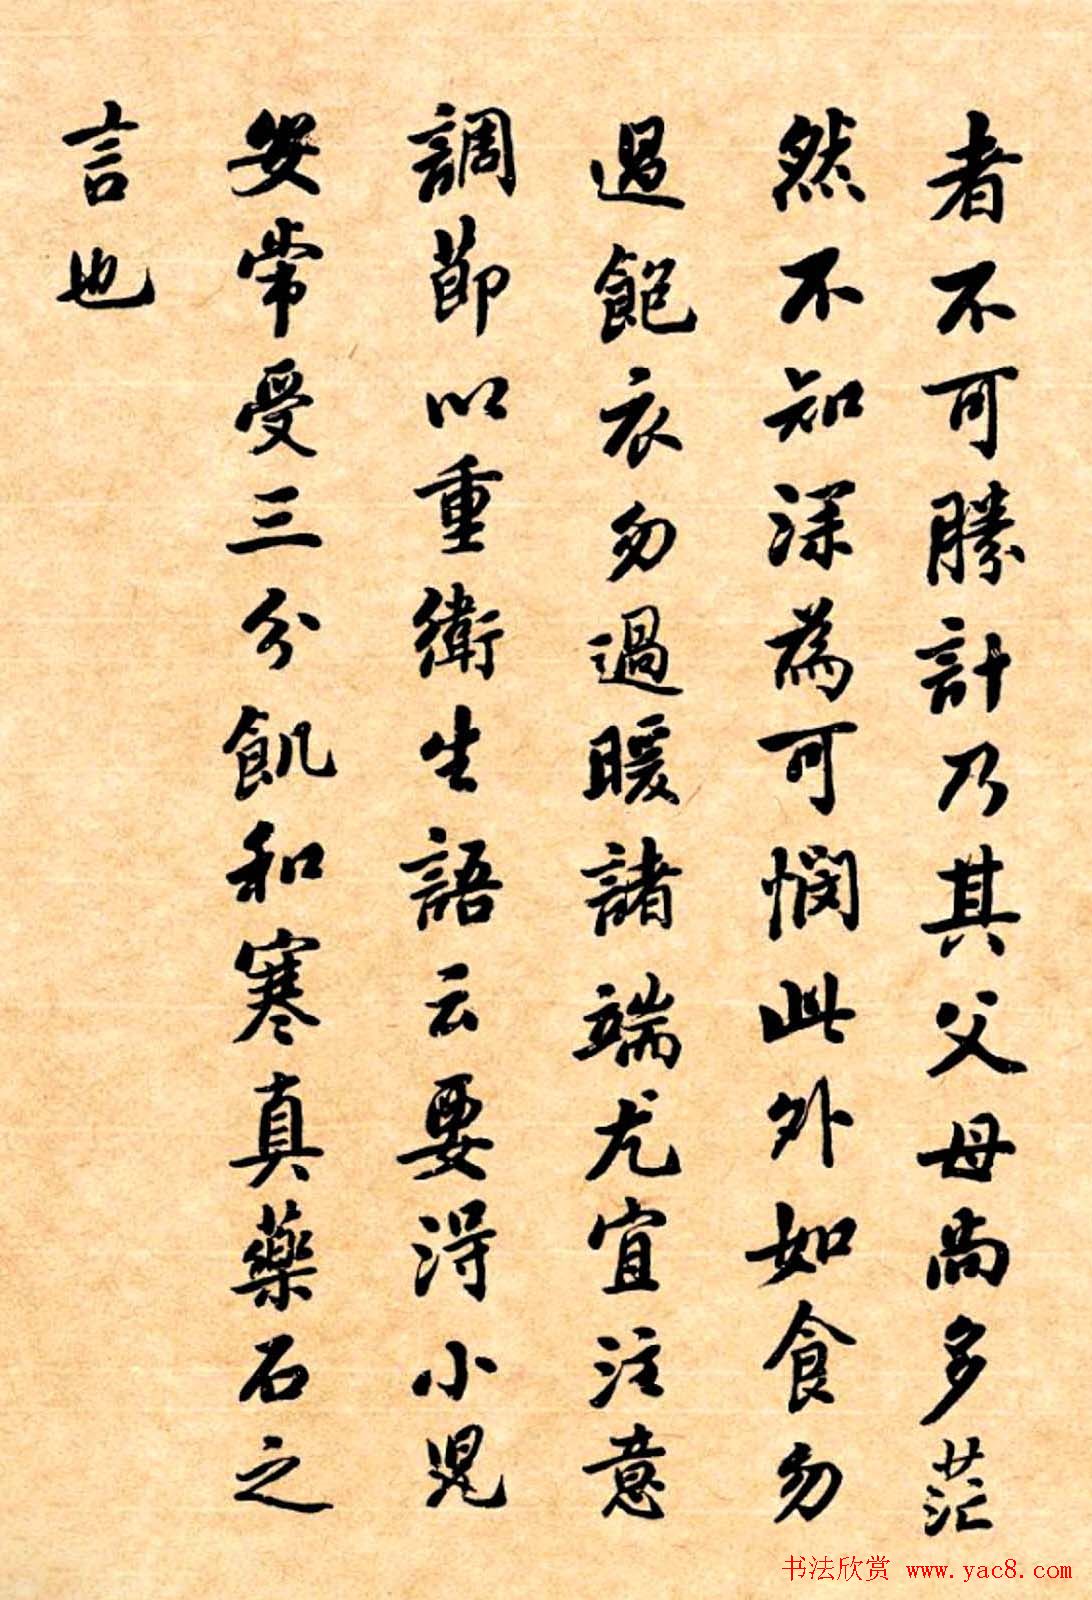 者不可勝計乃其父母尚多茫
然不知深為可憫此外如食勿
過飽衣勿過暖諸端尤宜注意
調節以重衛生語云要得小児
安常受三分飢和寒真藥石之
言也
书法欣赏 www.yac8.com